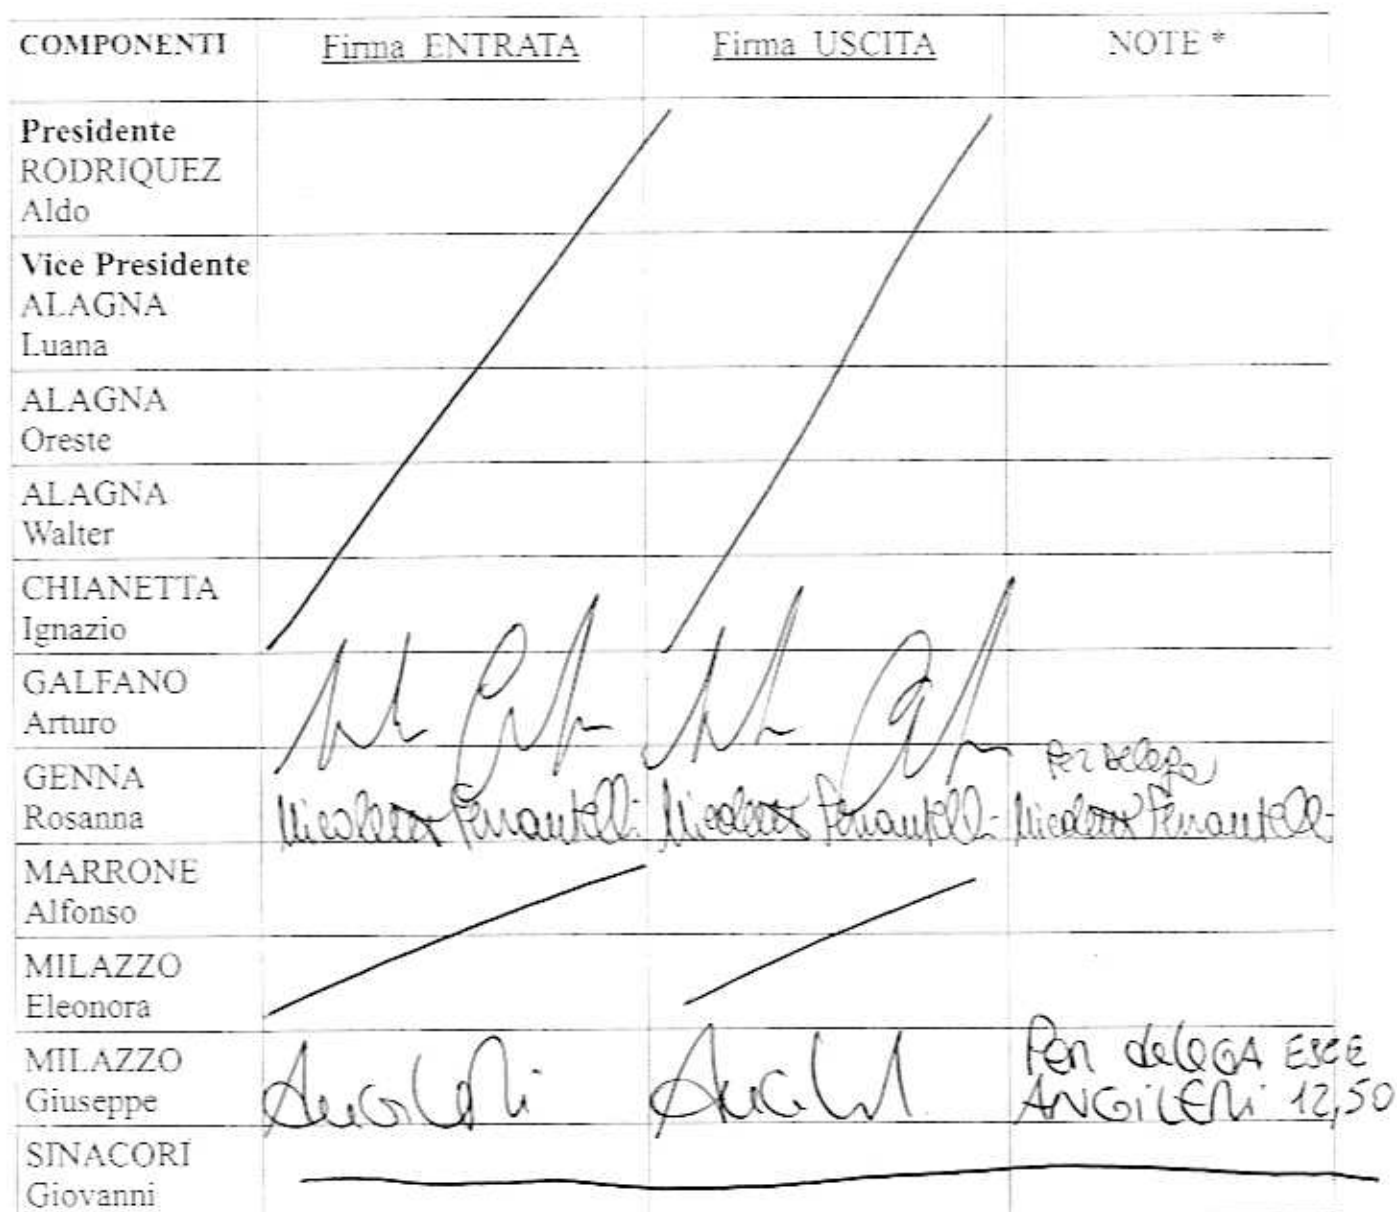 COMPONENTI Firma ENTRATA Firma USCITA NOTE *
Presidente
RODRIQUEZ
Aldo
Vice Presidente
ALAGNA
Luana
ALAGNA
Oreste
ALAGNA
Walter
CHIANETTA
Ignazio
GALFANO
Arturo
GENNA
Per delega
Rosanna
Nicoletta Ferrantelli Nicoletta Ferrantelli Nicoletta Ferrantelli
MARRONE
Alfonso
MILAZZO
Eleonora
MILAZZO
Per delega ESCE
Giuseppe
Angileri ANGILERI 12,50
SINACORI
Giovanni